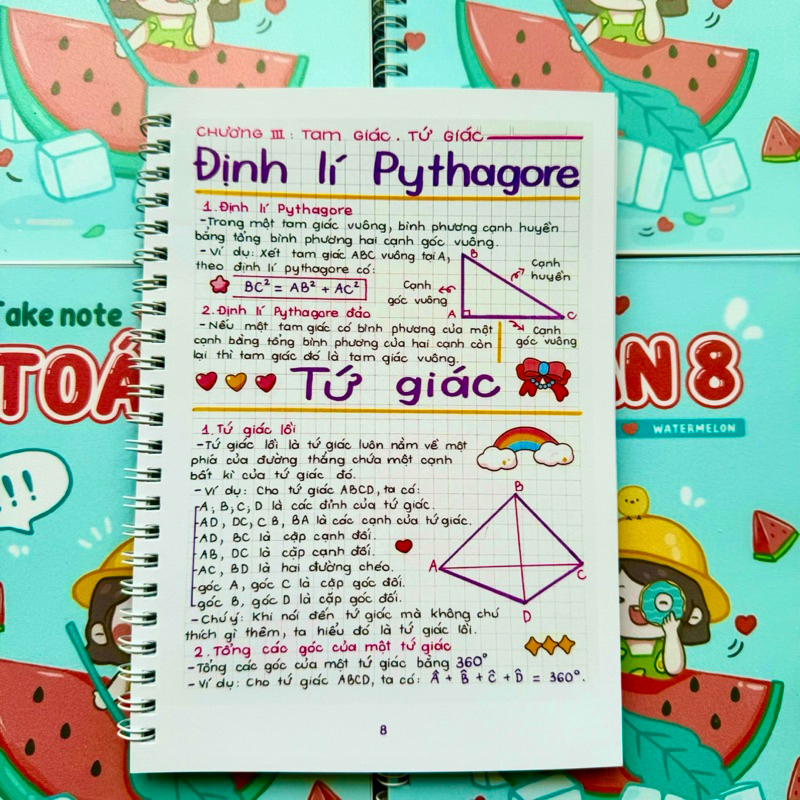 CHƯƠNG III: TAM GIÁC. TỨ GIÁC
Định lí Pythagore
1. Định lí Pythagore
-Trong một tam giác vuông, bình phương cạnh huyền
bằng tổng bình phương hai cạnh góc vuông.
-Ví dụ: Xét tam giác ABC vuông tại A,
theo định lí pythagore có:
BC² = AB² + AC²
B
Cạnh
huyền
Cạnh
góc vuông
A
C
Cạnh
góc vuông
2. Định lí Pythagore đảo
-Nếu một tam giác có bình phương của một
cạnh bằng tổng bình phương của hai cạnh còn
lại thì tam giác đó là tam giác vuông.
Tứ giác
1. Tứ giác lồi
-Tứ giác lồi là tứ giác luôn nằm về một
phía của đường thẳng chứa một cạnh
bất kì của tứ giác đó.
-Ví dụ: Cho tứ giác ABCD, ta có:
A; B; C; D là các đỉnh của tứ giác.
AD, DC, CB, BA là các cạnh của tứ giác.
AD, BC là cặp cạnh đối.
AB, DC là cặp cạnh đối.
AC, BD là hai đường chéo.
góc A, góc C là cặp góc đối.
góc B, góc D là cặp góc đối.
B
A
C
D
-Chú ý: Khi nói đến tứ giác mà không chú
thích gì thêm, ta hiểu đó là tứ giác lồi.
2. Tổng các góc của một tứ giác
-Tổng các góc của một tứ giác bằng 360°
-Ví dụ: Cho tứ giác ABCD, ta có: Â + B̂ + Ĉ + D̂ = 360°.
8
Take note
TOÁ
!!!
ÁN 8
WATERMELON